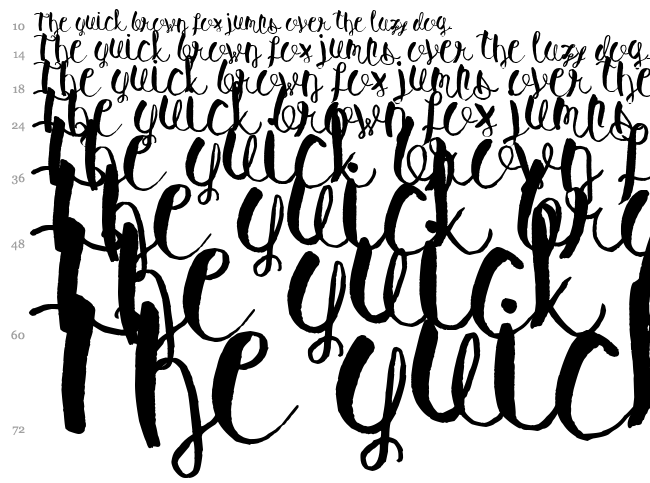 10 The quick brown fox jumps over the lazy dog.
14 The quick brown fox jumps over the lazy dog.
18 The quick brown fox jumps over the
24 The quick brown fox jumps
36 The quick brown f
48 The quick bro
60 The quick
72 The quick